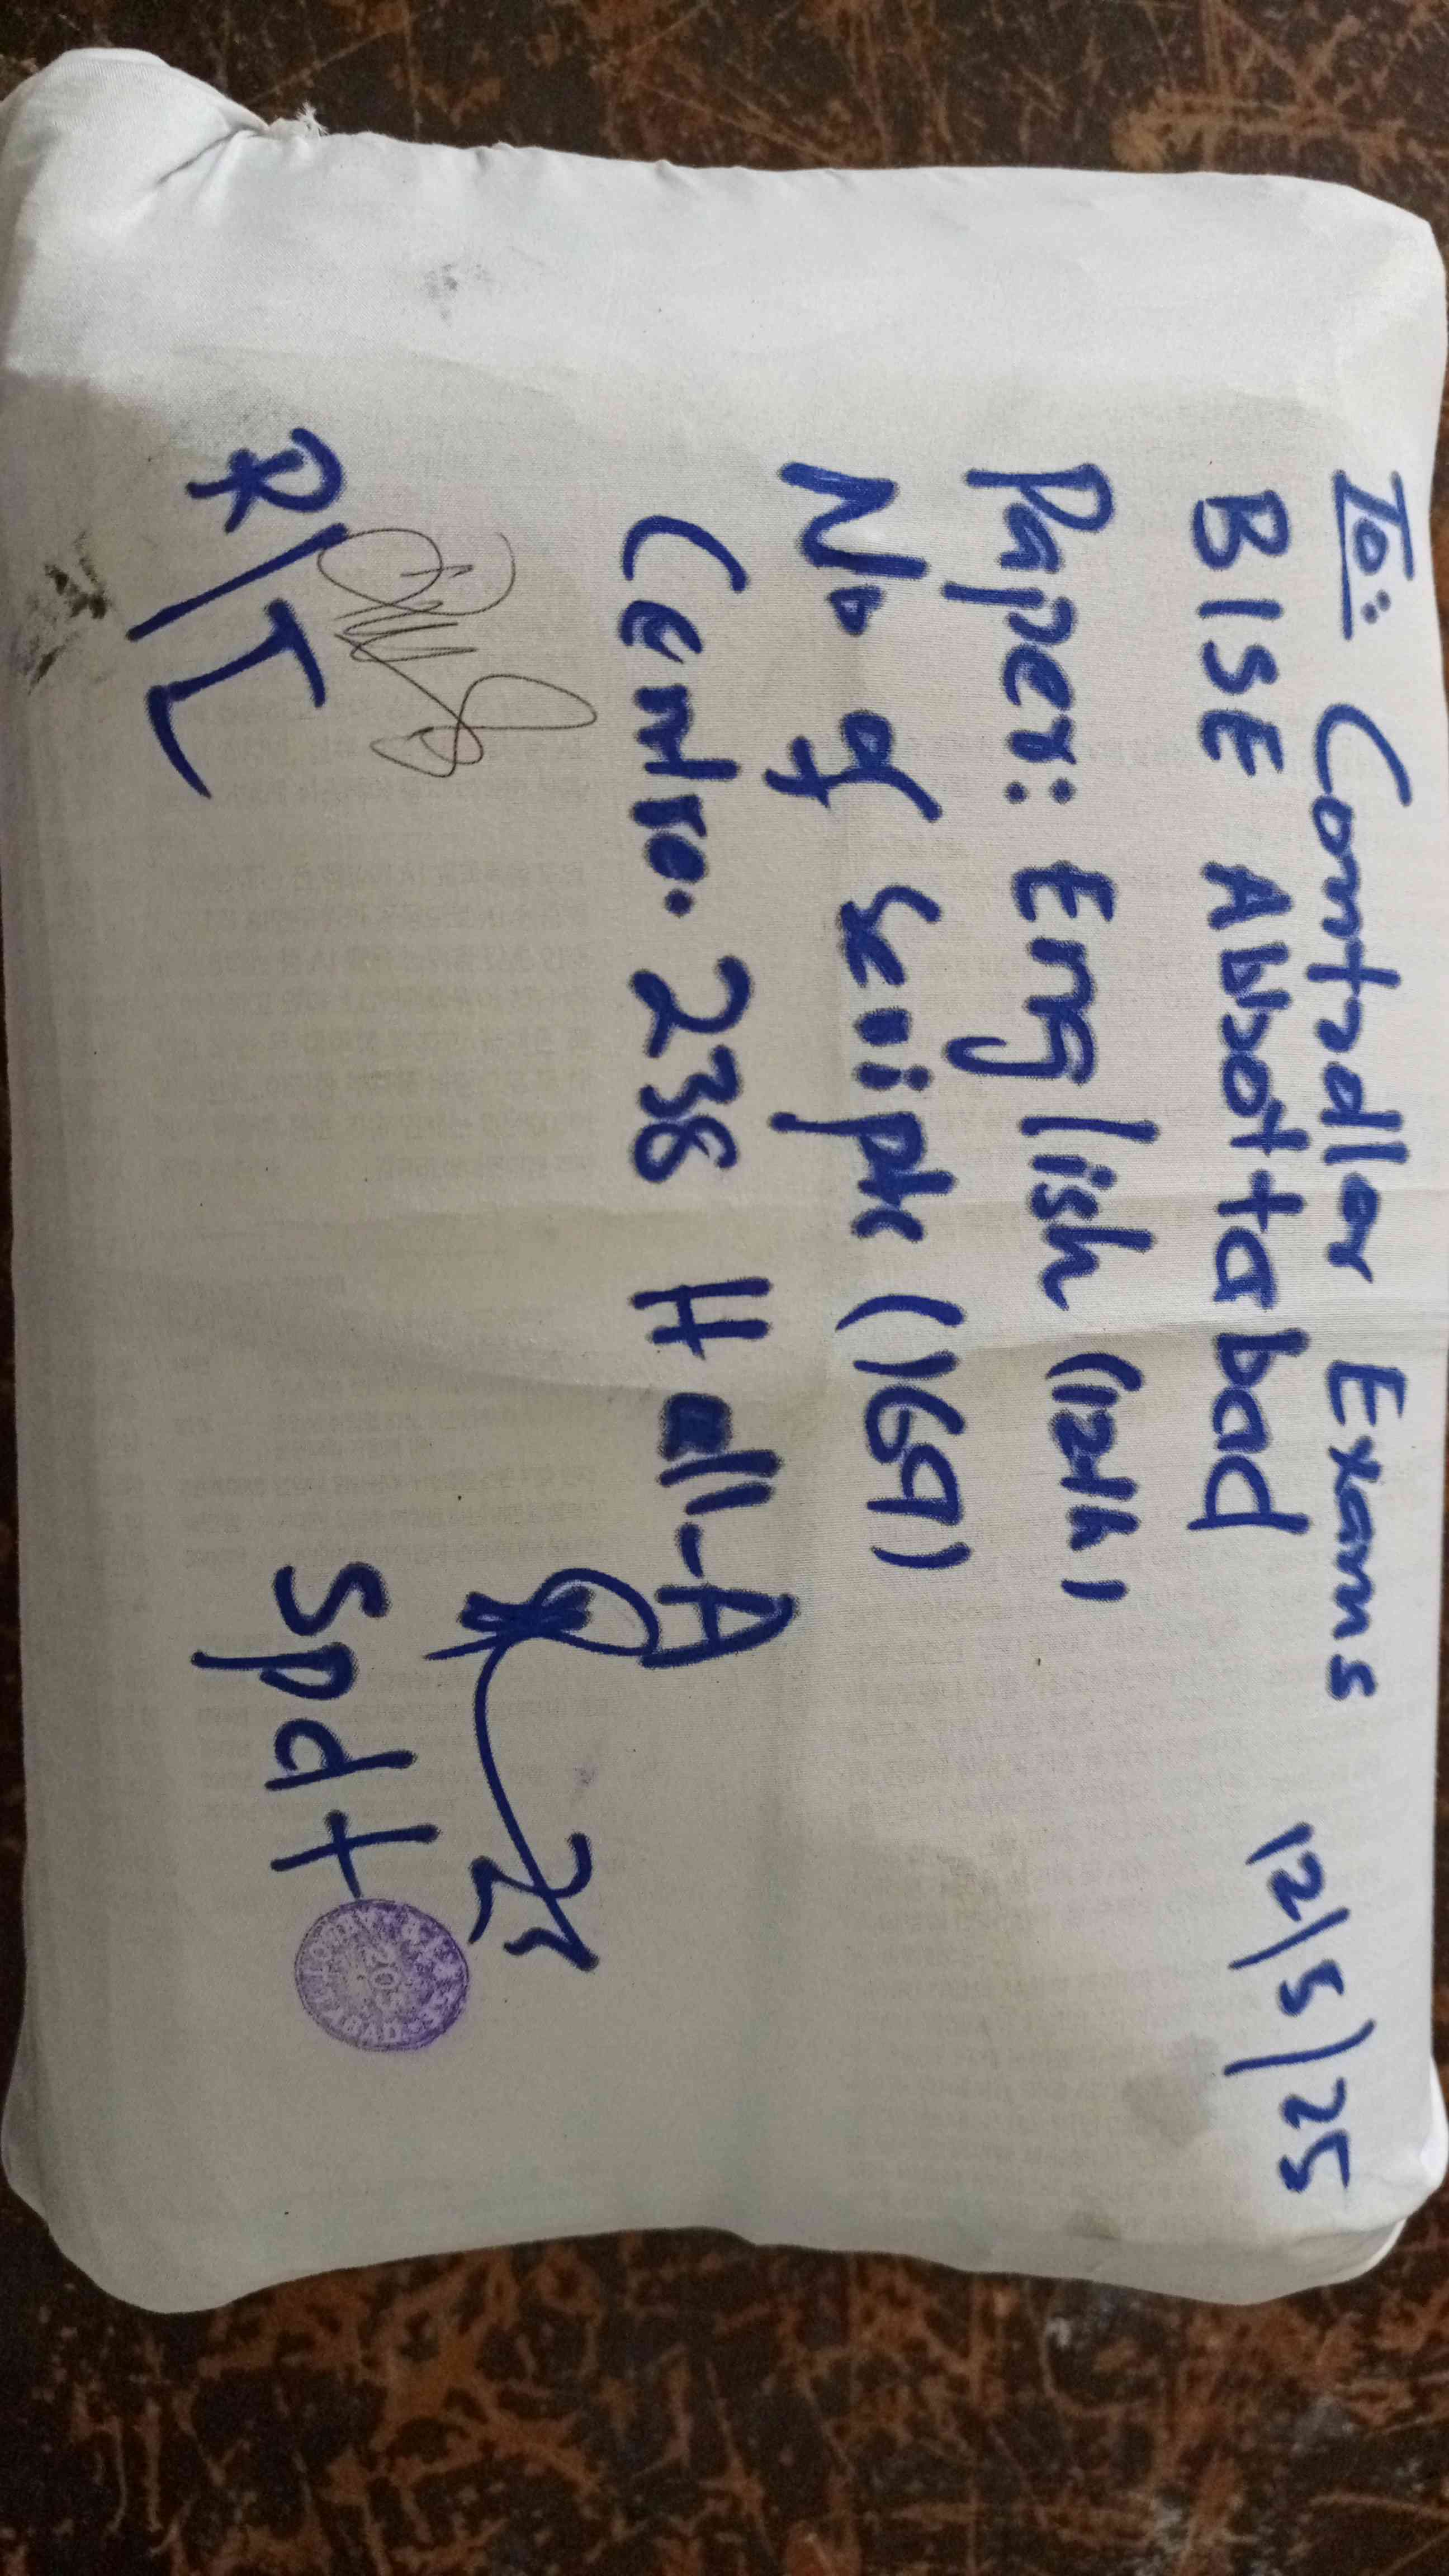 To: Controller Exams 12/5/25
BISE Abbottabad
Paper: English (12th)
No of Scripts (169)
Centre: 238 Hall-A
R/I Spdt